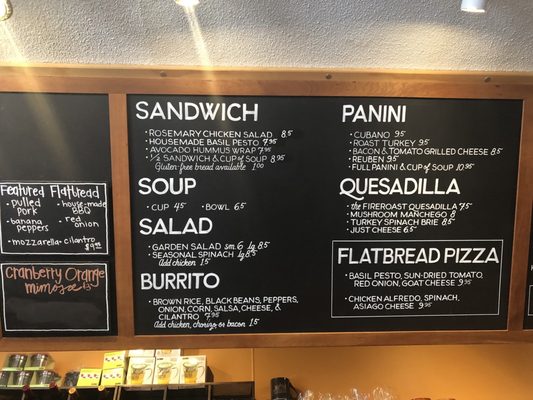 Featured Flatbread
• pulled pork
• house-made BBQ
• banana peppers
• red onion
• mozzarella • cilantro
Cranberry Orange
mimosa
SANDWICH
• ROSEMARY CHICKEN SALAD 8.5
• HOUSEMADE BASIL PESTO 7.95
• AVOCADO HUMMUS WRAP 7.95
• 1/2 SANDWICH & CUP of SOUP 8.95
Gluten-free bread available 1.00
SOUP
• CUP 4.5 • BOWL 6.5
SALAD
• GARDEN SALAD sm. 6 lg. 8.5
• SEASONAL SPINACH lg. 8.5
Add chicken 1.5
BURRITO
• BROWN RICE, BLACK BEANS, PEPPERS,
ONION, CORN, SALSA, CHEESE, &
CILANTRO 7.95
Add chicken, chorizo, or bacon 1.5
PANINI
• CUBANO 9.5
• ROAST TURKEY 9.5
• BACON & TOMATO GRILLED CHEESE 8.5
• REUBEN 9.5
• FULL PANINI & CUP of SOUP 10.95
QUESADILLA
• the FIREROAST QUESADILLA 7.5
• MUSHROOM MANCHEGO 8
• TURKEY SPINACH BRIE 8.5
• JUST CHEESE 6.5
FLATBREAD PIZZA
• BASIL PESTO, SUN-DRIED TOMATO,
RED ONION, GOAT CHEESE 9.95
• CHICKEN ALFREDO, SPINACH,
ASIAGO CHEESE 9.95